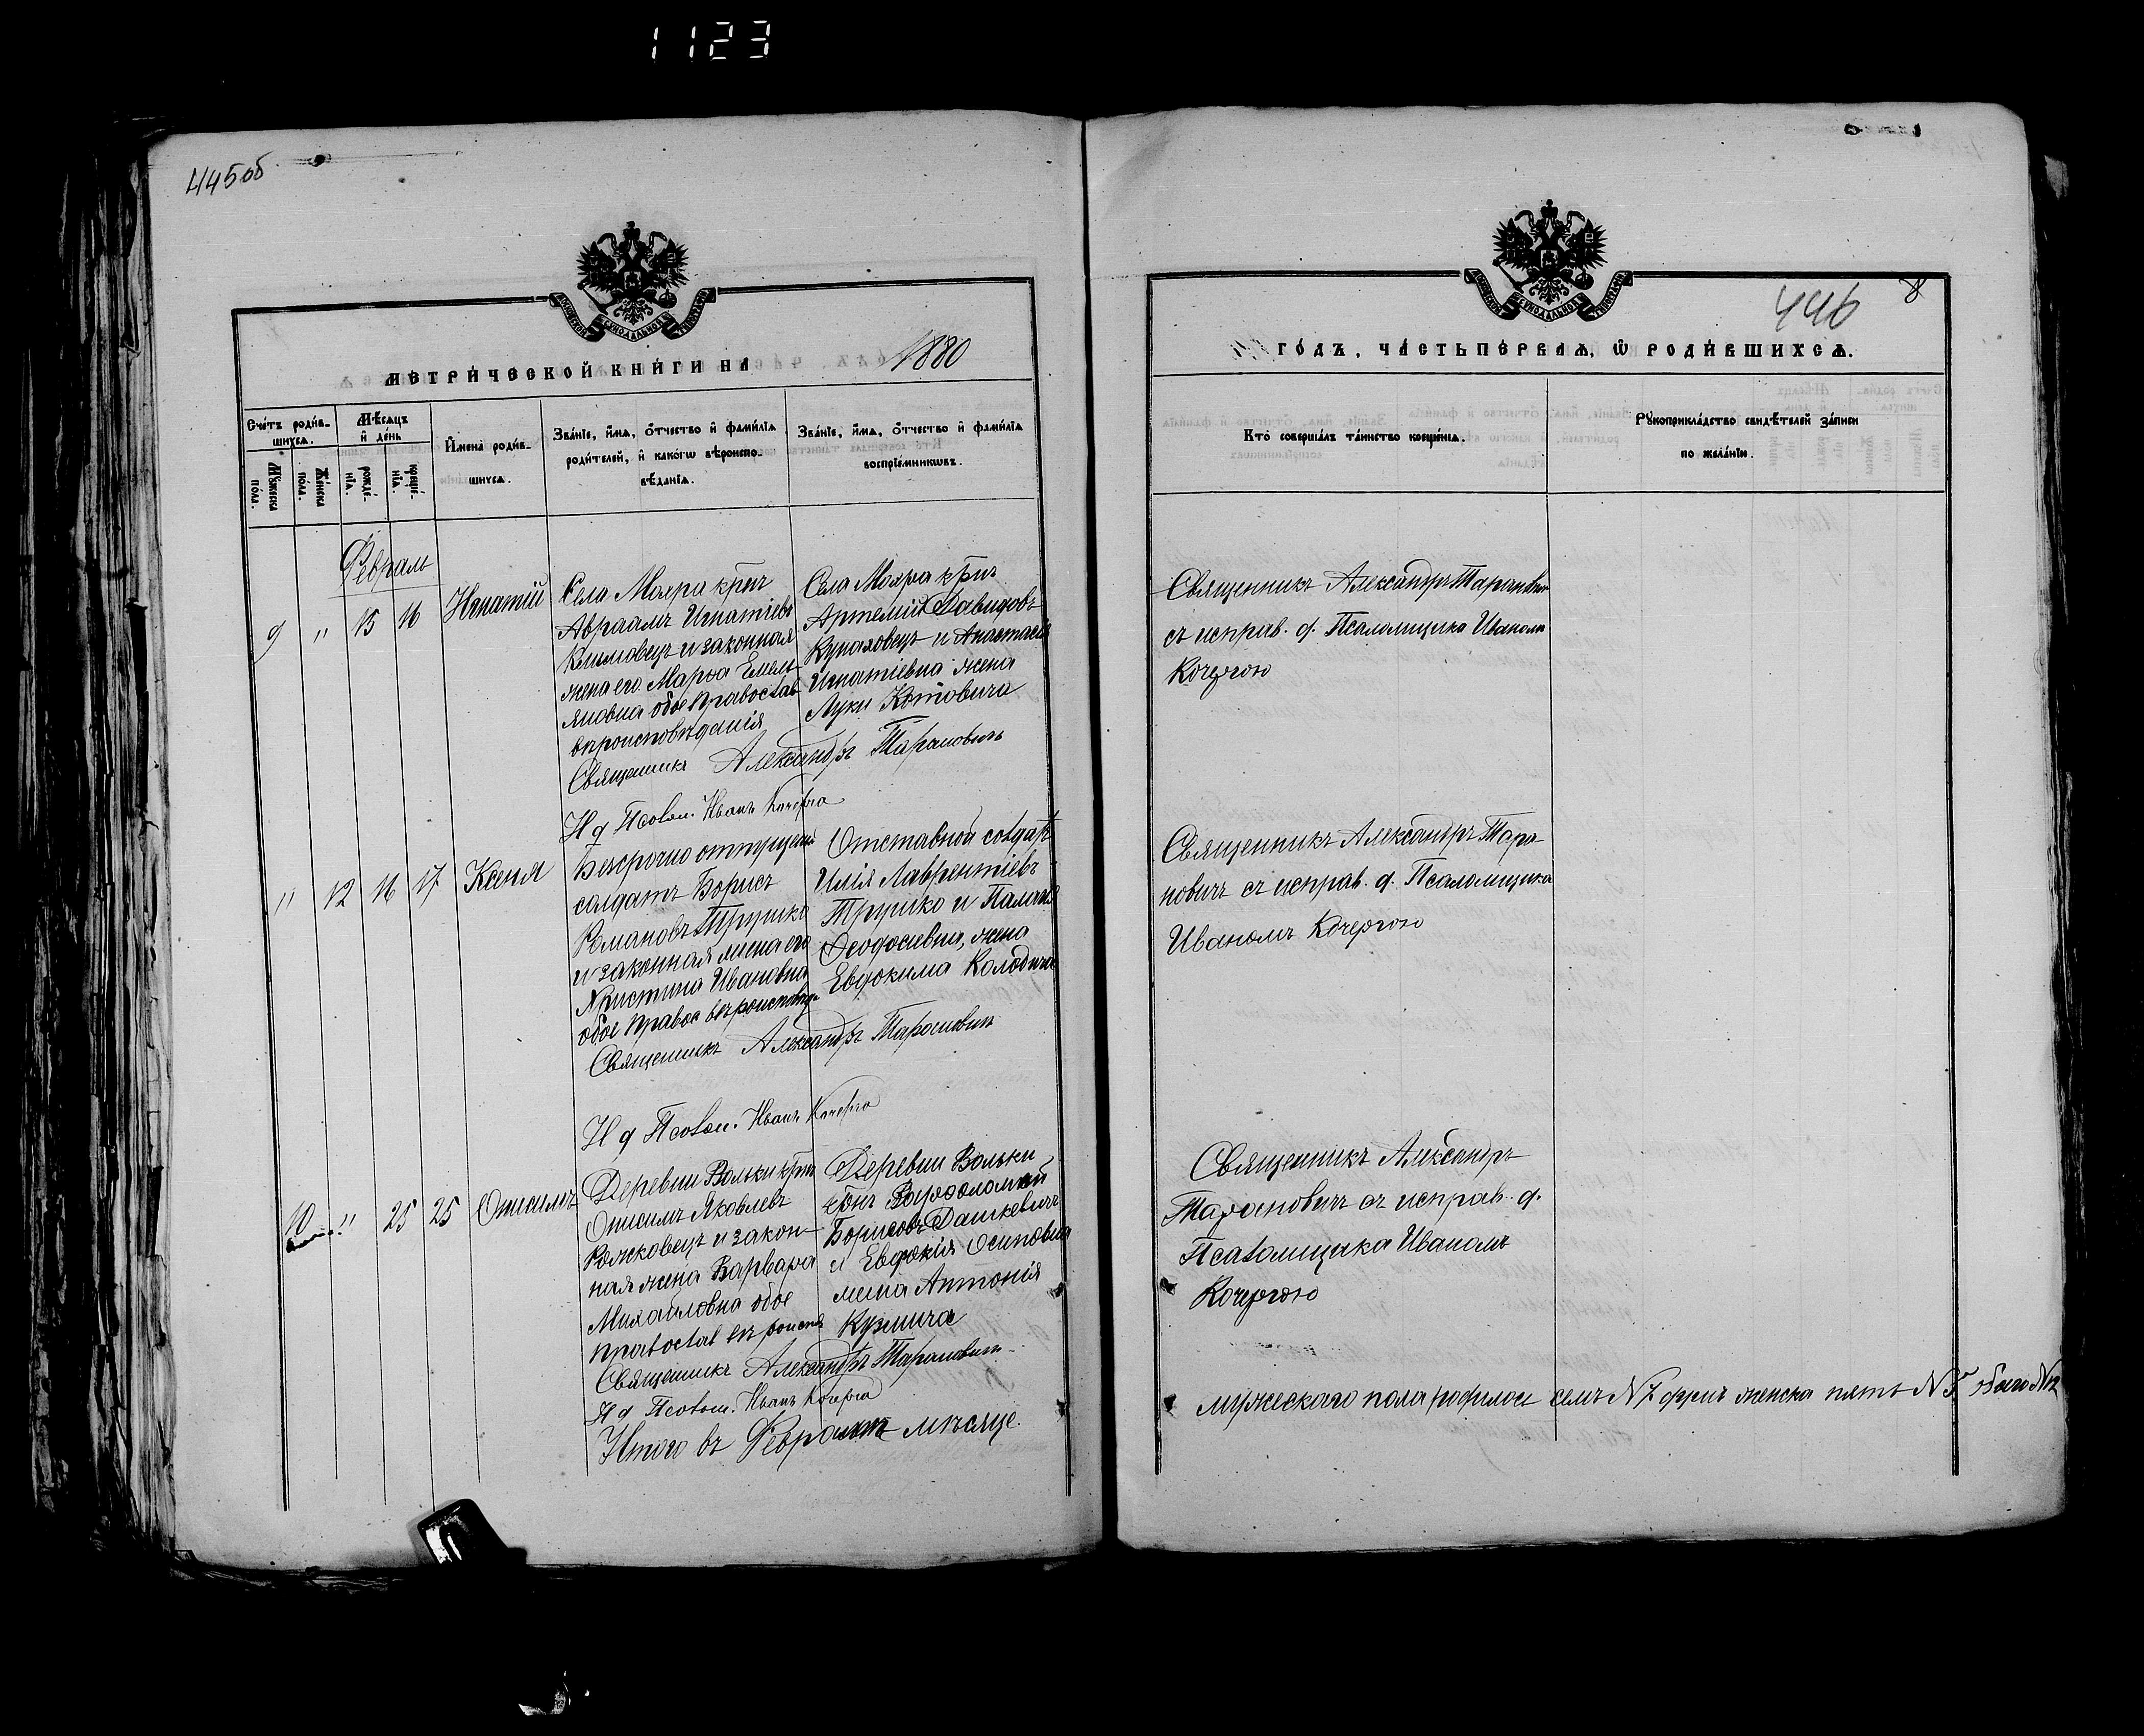 1123
445об
МЕТРИ́ЧЕСКОЙ КНИ́ГИ НА 1880
Сче́тъ роди́в-
шихсѧ.
Мѣ́сѧцъ
и҆ день
И҆мена̀ роди́в-
шихсѧ.
Зва́нїе, и҆́мѧ, ѻ҆́тчество и҆ фами́лїѧ
роди́телей, и҆ како́гѡ вѣроиспо-
вѣ́данїѧ.
Зва́нїе, и҆́мѧ, ѻ҆́тчество и҆ фами́лїѧ
воспрїе́мникѡвъ.
Мꙋ́жеска
по́ла.
Же́нска
по́ла.
рожде́-
нїѧ.
креще́-
нїѧ.
Февраль
9 " 15 16 Игнатій
Села Мокра крест
Авраамъ Игнатіевъ
Климовецъ и законная
жена его Марѳа Емель-
яновна обое православ
вѣроисповѣданія
Села Мокра крест
Артемій Давидовъ
и Анастасія
Игнатіевна жена
Луки Котовича
Священникъ Александръ Тарановичъ
И д Псалом. Иванъ Кочерга
" 12 16 17 Ксенія
Безсрочно отпущенный
солдатъ Борисъ
Романовъ Трушко
и законная жена его
Христина Ивановна
обое правос вѣроисповѣд
Отставной солдатъ
Илія Лаврентіевъ
Трушко и
Ѳеодосіевна, жена
Евдокима Колодича
Священникъ Александръ Тарановичъ
И д Псалом. Иванъ Кочерга
10 " 25 25 Онисимъ
Деревни Вольки крест
Онисимъ Яковлевъ
Рожковецъ и закон-
ная жена Варвара
Михайловна обое
православ вѣроиспов
Деревни Вольки
крест Варѳоломей
Борисовъ Дашкевичъ
и Евдокія Осиповна
жена Антонія
Кузмича
Священникъ Александръ Тарановичъ
И д Псалом. Иванъ Кочерга
Итого въ Февралѣ мѣсяце
446
8
ГО́ДЪ, ЧА́СТЬ ПЕ́РВАѦ, Ѡ҆ РОДИ́ВШИХСѦ.
Кто̀ соверша́лъ та́инство креще́нїѧ.
Рꙋкоприкла́дство свидѣ́телей за́писи
по жела́нїю.
Священникъ Александръ Тарановичъ
съ исправ. д. Псаломщика Иваномъ
Кочергою
Священникъ Александръ Тара-
новичъ съ исправ. д. Псаломщика
Иваномъ Кочергою
Священникъ Александръ
Тарановичъ съ исправ. д.
Псаломщика Иваномъ
Кочергою
мужескаго пола родилось семь №7 женска пять №5 обоего №12